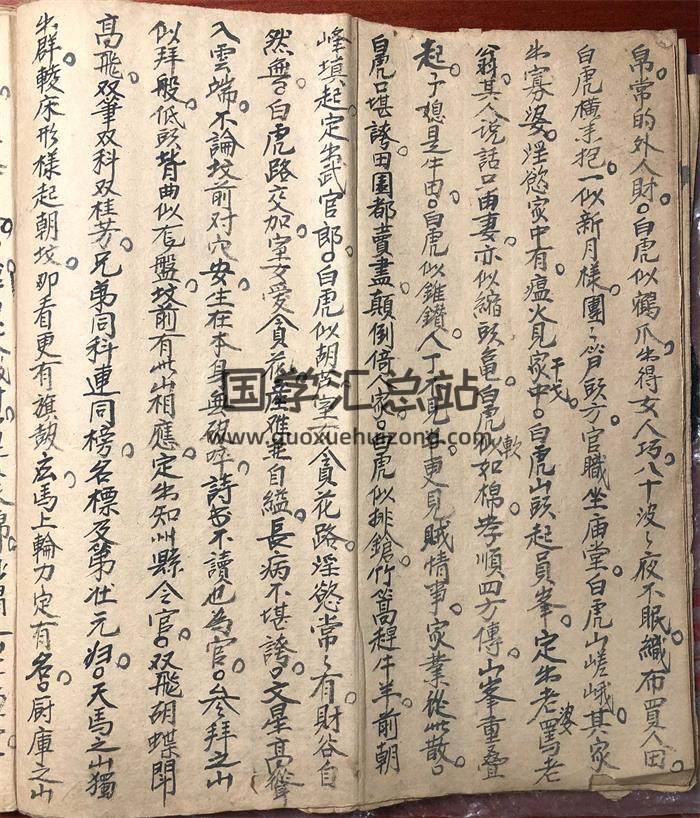 帛常的外人財。白虎似鶴爪出得女人巧八十波々夜不眠織布買人田。
白虎橫手抱一似新月樣團々皆頭方官職坐庙堂白虎山嵯峨其家
出寡婆淫慾家中有瘟火見家中。干戈白虎山頭起員峯。定出老罵老婆
翁其人說話口由妻亦似縮頭龜白虎似如軟棉孝順四方傳山峯重叠
起子媳是牛田。白虎似錐鑽人丁不見年更見賊情事家業從此散。
白虎口堪誇田園都賣盡顛倒倍人家。白虎似排鎗竹篙趕牛羊前朝
峰填起定出武官郎。白虎似胡室女貪花路淫慾常々有財谷自
然無白虎路交加室女愛貪花產难並自縊長病不堪誇文星高聳
入雲端不論坟前对穴安生在本身無破碎詩書不讀也為官參拜之山
似拜般低頭皆曲似右盤坟前有此山相應定出知州縣令官双飛胡蝶鬧
高飛双筆双科双桂芳兄弟同科連同榜名標及第状元归天馬之山獨
出群較床形樣起朝坟那看更有旗鼓应馬上輪刀定有名厨庫之山
国学汇总站
www.guoxuehuizong.com